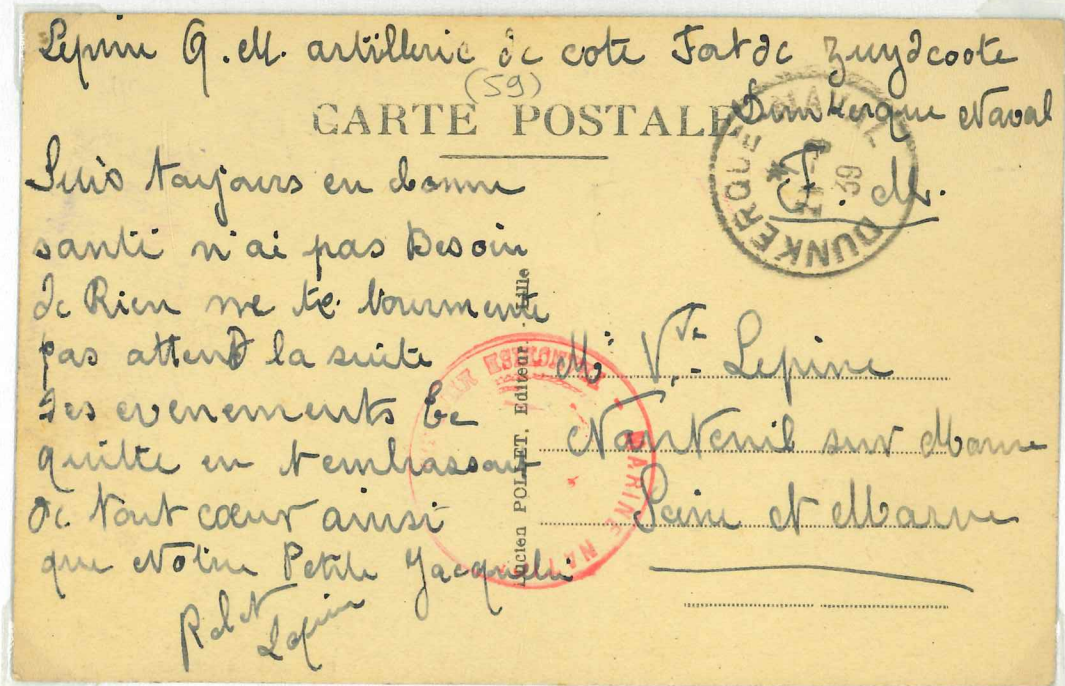 Lepine Q.M. artillerie de cote Fort de Zuydcoote
(59)
Dunkerque Naval
CARTE POSTALE
F. M.
DUNKERQUE NAVAL
39
Suis toujours en bonne
santé n'ai pas Besoin
de Rien ne te tourmente
pas attend la suite
des evenements te
quitte en t'embrassant
de tout cœur ainsi
que Notre Petite Jacqueline
Robert
Lepine
Lucien POLLET, Editeur - Lille
MARINE NAT
Me Vve Lepine
Nanteuil sur Marne
Seine et Marne